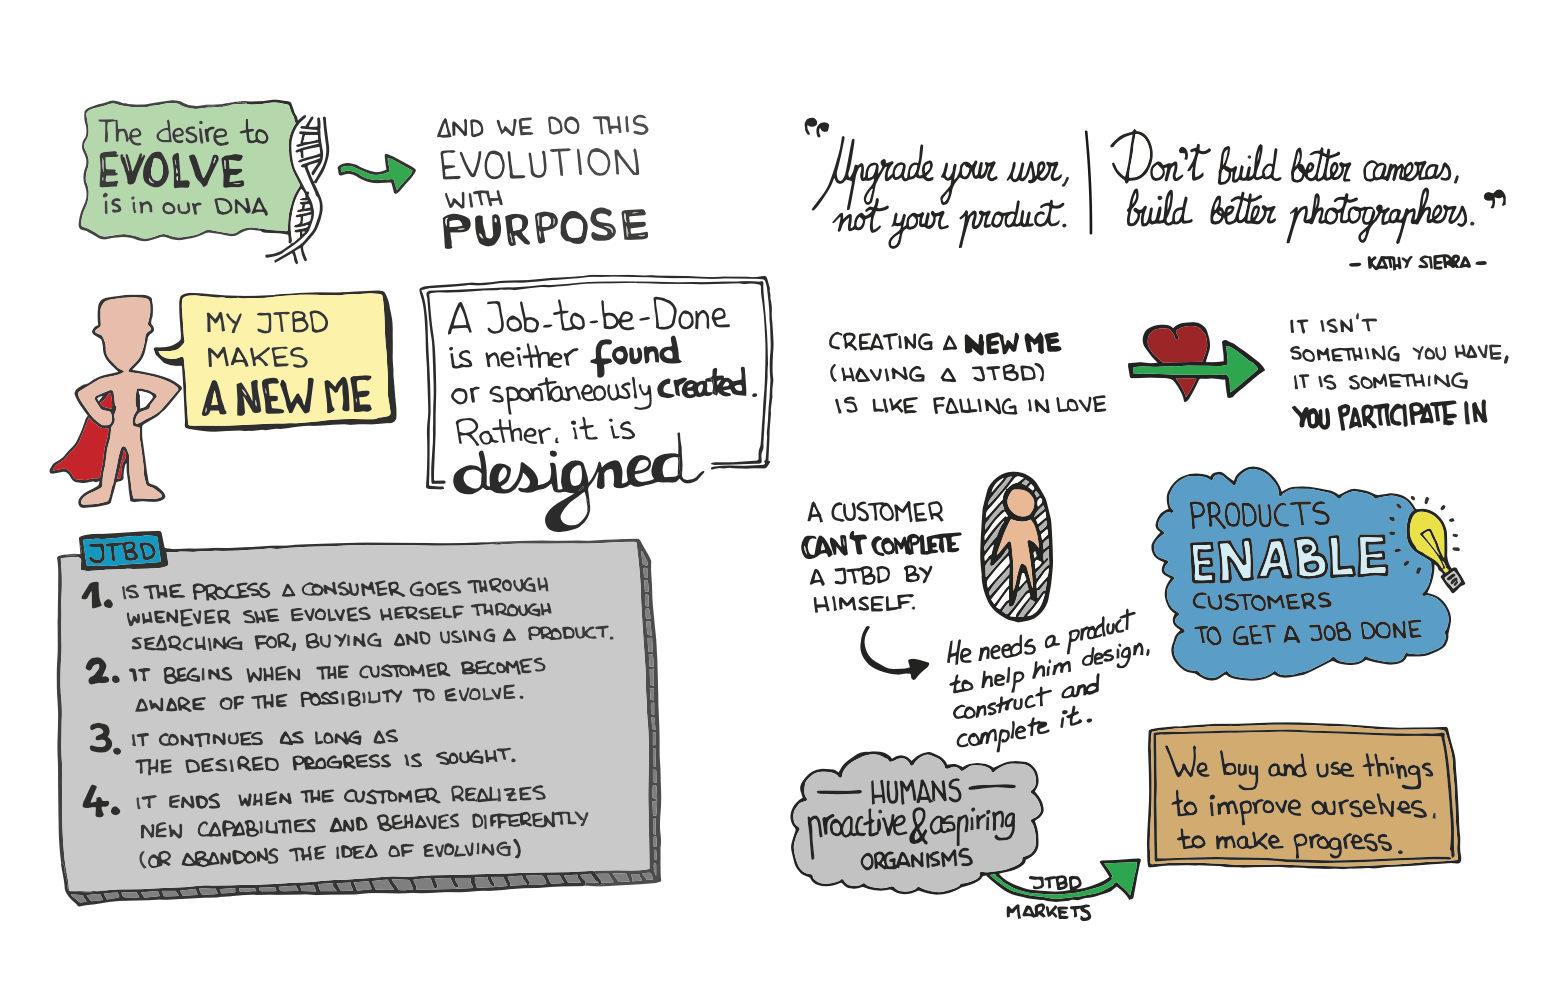 The desire to
EVOLVE
is in our DNA
AND WE DO THIS
EVOLUTION
WITH
PURPOSE
MY JTBD
MAKES
A NEW ME
A Job-to-be-Done
is neither found
or spontaneously created.
Rather, it is
designed
JTBD
1. IS THE PROCESS A CONSUMER GOES THROUGH
WHENEVER SHE EVOLVES HERSELF THROUGH
SEARCHING FOR, BUYING AND USING A PRODUCT.
2. IT BEGINS WHEN THE CUSTOMER BECOMES
AWARE OF THE POSSIBILITY TO EVOLVE.
3. IT CONTINUES AS LONG AS
THE DESIRED PROGRESS IS SOUGHT.
4. IT ENDS WHEN THE CUSTOMER REALIZES
NEW CAPABILITIES AND BEHAVES DIFFERENTLY
(OR ABANDONS THE IDEA OF EVOLVING)
“Upgrade your user,
not your product.
Don't build better cameras,
build better photographers.”
- KATHY SIERRA -
CREATING A NEW ME
(HAVING A JTBD)
IS LIKE FALLING IN LOVE
IT ISN'T
SOMETHING YOU HAVE,
IT IS SOMETHING
YOU PARTICIPATE IN
A CUSTOMER
CAN'T COMPLETE
A JTBD BY
HIMSELF.
He needs a product
to help him design,
construct and
complete it.
PRODUCTS
ENABLE
CUSTOMERS
TO GET A JOB DONE
HUMANS
proactive & aspiring
ORGANISMS
JTBD
MARKETS
We buy and use things
to improve ourselves,
to make progress.